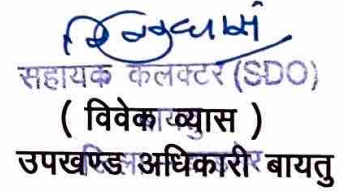 सहायक कलक्टर (SDO)
( विवेक व्यास )
उपखण्ड अधिकारी बायतु